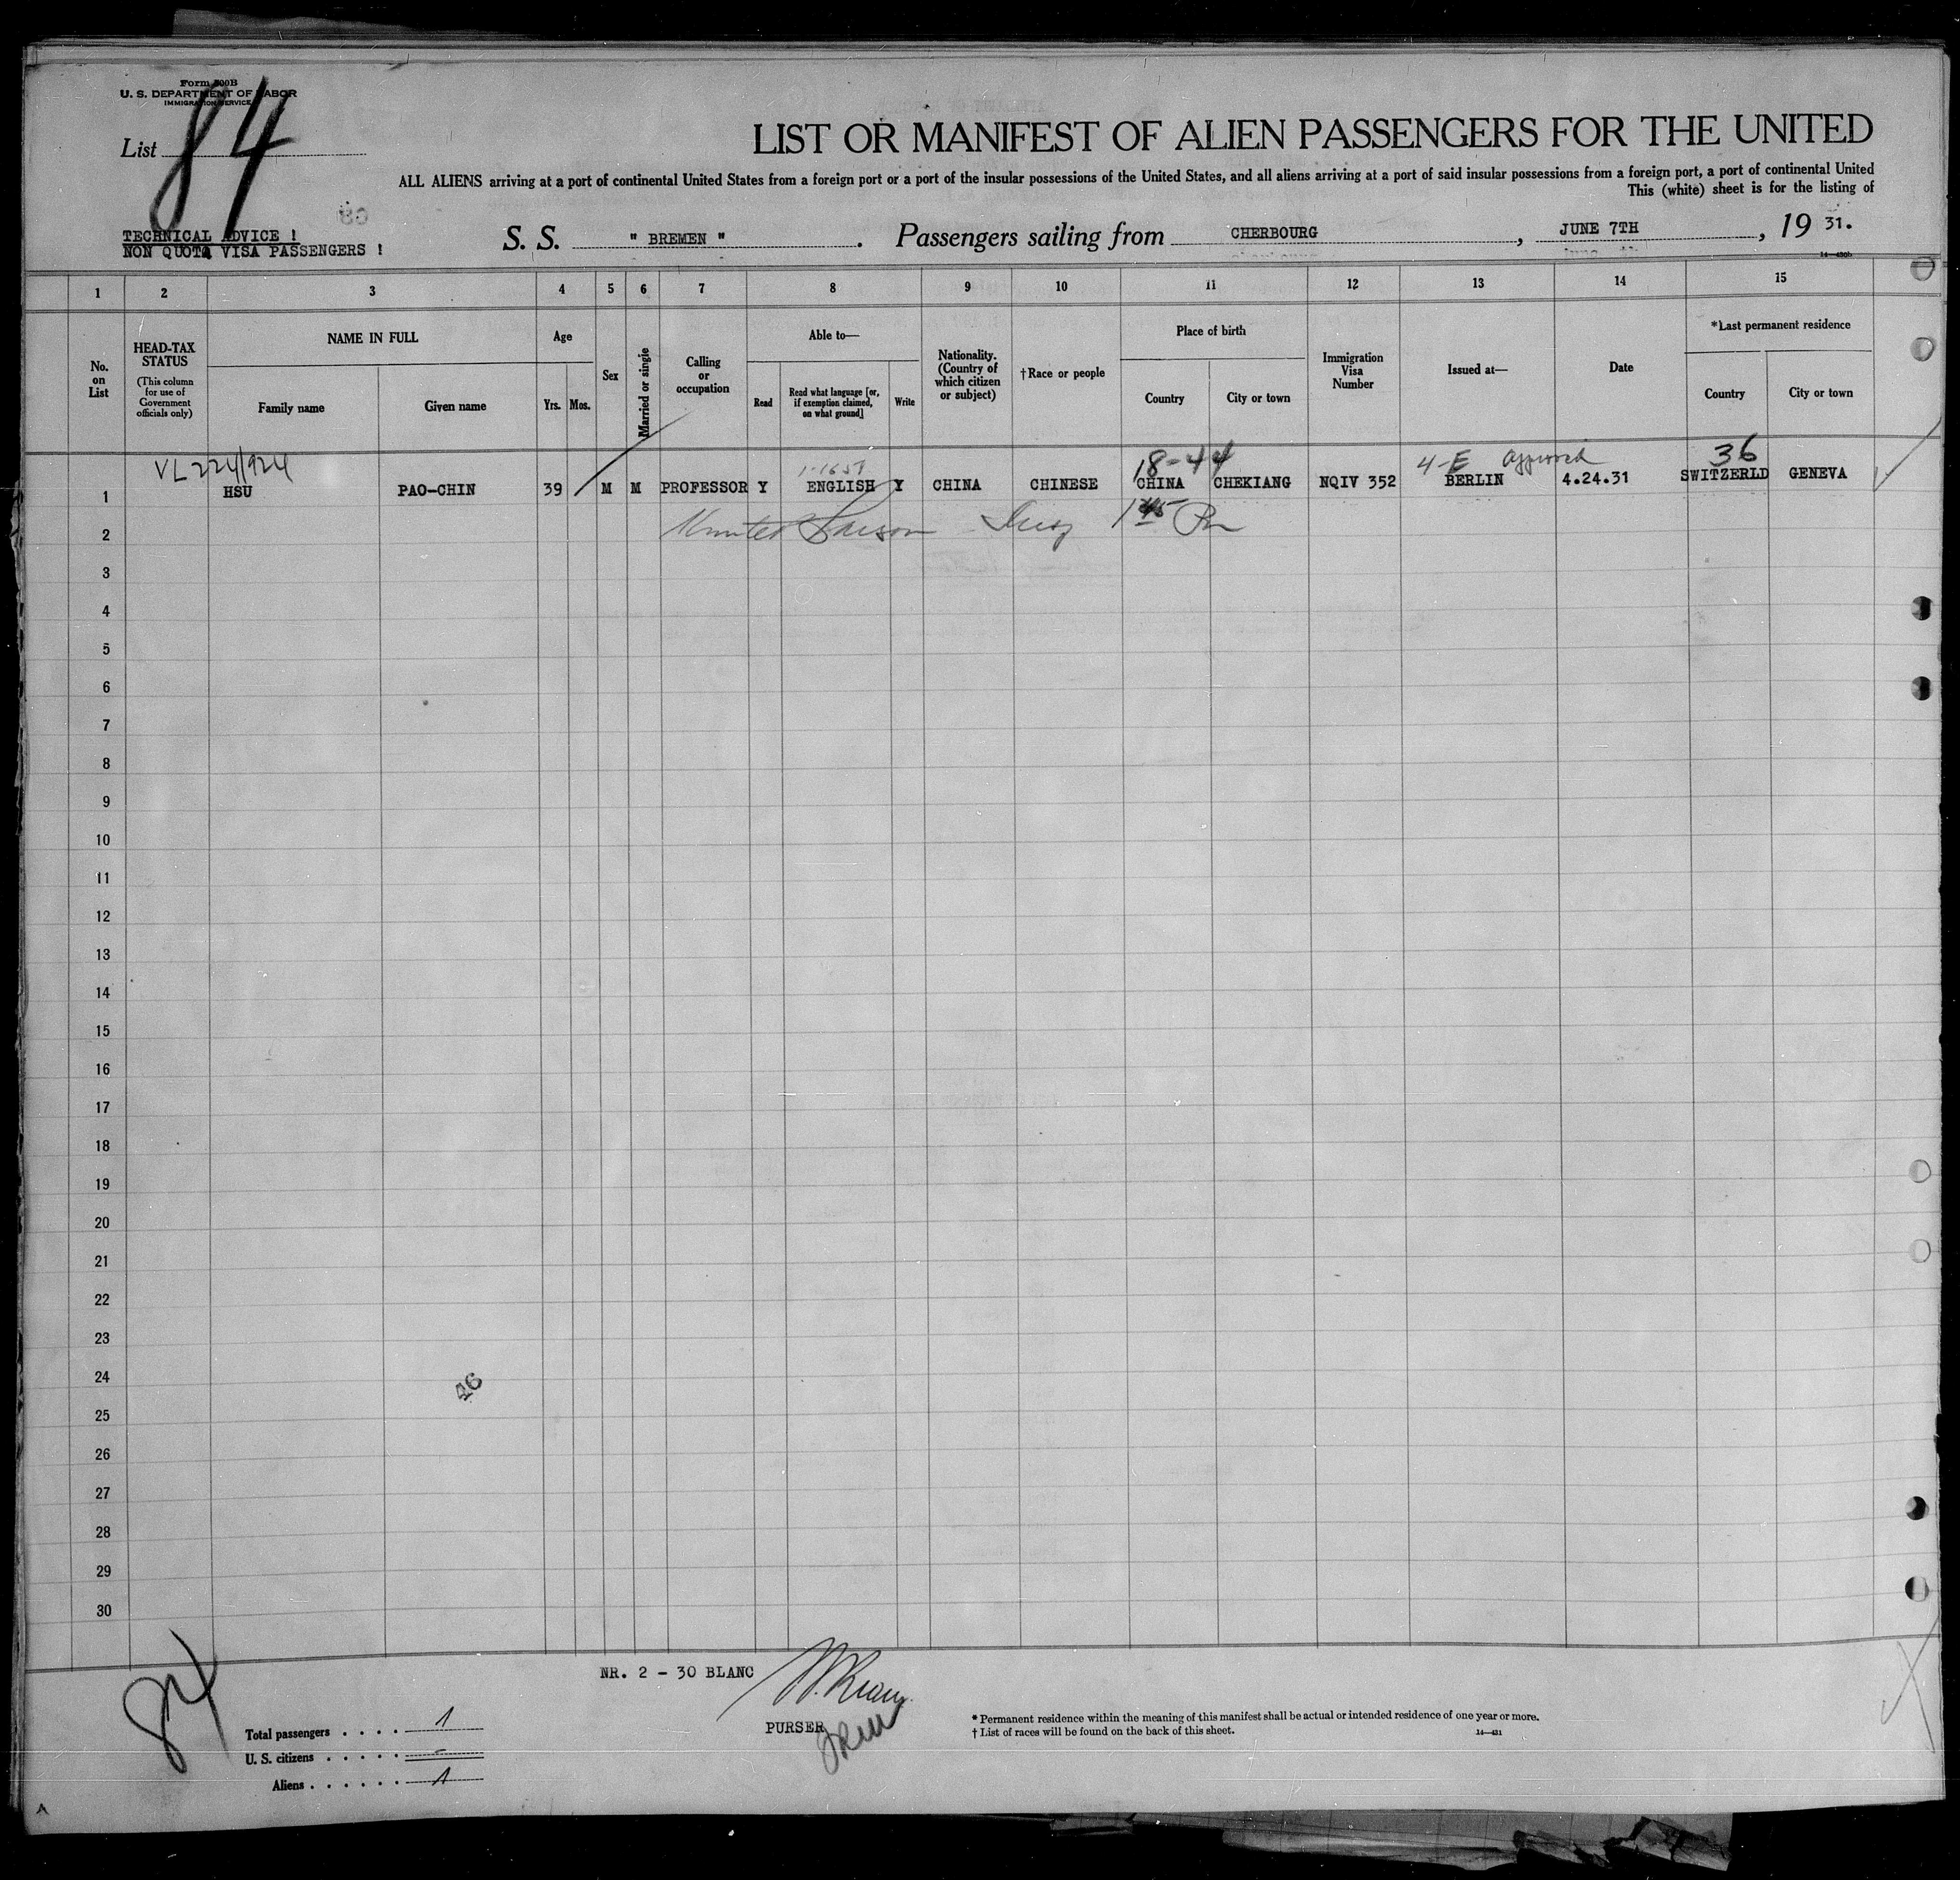 Form 500B
U. S. DEPARTMENT OF LABOR
IMMIGRATION SERVICE
List 84
LIST OR MANIFEST OF ALIEN PASSENGERS FOR THE UNITED
ALL ALIENS arriving at a port of continental United States from a foreign port or a port of the insular possessions of the United States, and all aliens arriving at a port of said insular possessions from a foreign port, a port of continental United
This (white) sheet is for the listing of
TECHNICAL ADVICE !
NON QUOTA VISA PASSENGERS !
S. S. " BREMEN " . Passengers sailing from CHERBOURG , JUNE 7TH , 19 31.
14—430b
1 2 3 4 5 6 7 8 9 10 11 12 13 14 15
No. on List
HEAD-TAX STATUS
(This column for use of Government officials only)
NAME IN FULL
Family name
Given name
Age
Yrs.
Mos.
Sex
Married or single
Calling or occupation
Able to—
Read
Read what language [or, if exemption claimed, on what ground]
Write
Nationality. (Country of which citizen or subject)
†Race or people
Place of birth
Country
City or town
Immigration Visa Number
Issued at—
Date
*Last permanent residence
Country
City or town
VL 224/924
18-44
4-E
36
1 HSU PAO-CHIN 39 M M PROFESSOR Y ENGLISH Y CHINA CHINESE CHINA CHEKIANG NQIV 352 BERLIN 4.24.31 SWITZERLD GENEVA
2
3
4
5
6
7
8
9
10
11
12
13
14
15
16
17
18
19
20
21
22
23
24
46
25
26
27
28
29
30
84
NR. 2 - 30 BLANC
PURSER
Total passengers . . . . 1
U. S. citizens . . . . . -
Aliens . . . . . . 1
* Permanent residence within the meaning of this manifest shall be actual or intended residence of one year or more.
† List of races will be found on the back of this sheet.
14—431